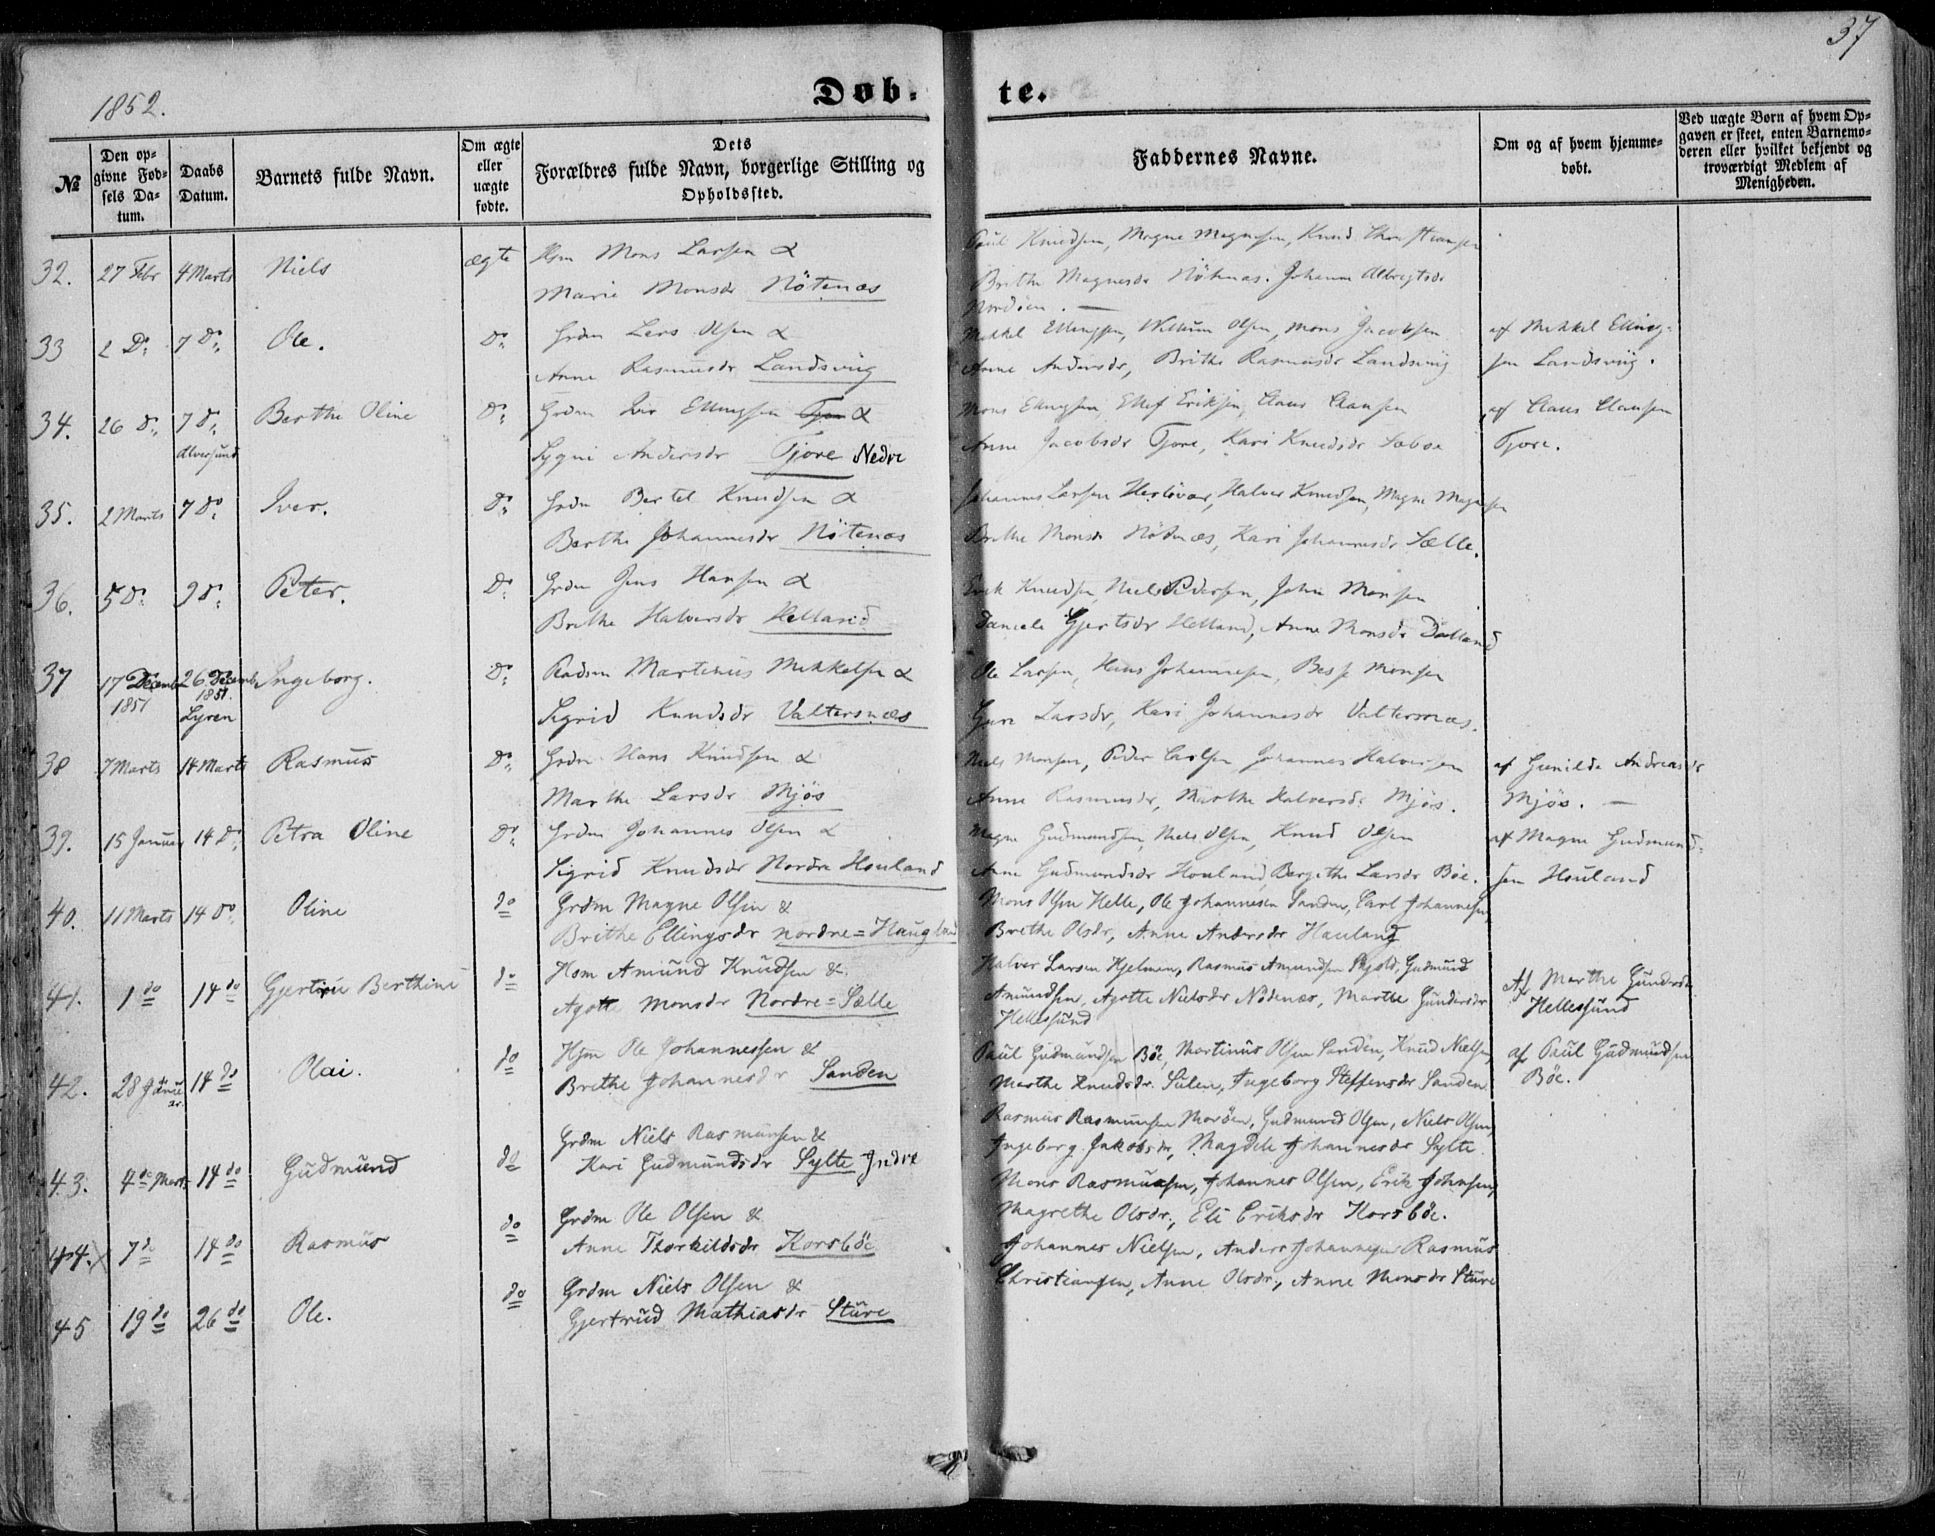 37
1852.
Døb- te.
№
Den op-
givne Fød-
sels Da-
tum.
Daabs
Datum.
Barnets fulde Navn.
Om ægte
eller
uægte
fødte.
Dets
Forældres fulde Navn, borgerlige Stilling og
Opholdssted.
Faddernes Navne.
Om og af hvem hjemme-
døbt.
Ved uægte Børn af hvem Op-
gaven er skeet, enten Barnemo-
deren eller hvilket bekjendt og
troværdigt Medlem af
Menigheden.
32. 27 Febr 4 Marts Niels ægte Hsm Mons Larsen &
Marie Monsdr Nötenæs
Paul Knudsen, Magne Magnesen, Knud
Brithe Magnesdr Nötnæs. Johanne Albrigtsdr
Nordöen. —
33 2 Do 7 Do Ole. Do Grdm Lars Olsen &
Anne Rasmusdr Landsviig
Mikkel Ellingsen, Willum Olsen, Mons Jacobsen
Anne Andersdr, Brithe Rasmusdr Landsviig
af Mikkel Elling-
sen Landsviig.
34. 26 Do 7 Do Berthe Oline Do Grdm Iver Ellingsen Tjore &
Alversund
Sygni Andersdr Tjore Nedre
Mons Ellingsen, Ellef Eriksen, Claus Clausen
Anne Jacobsdr Tjore, Kari Knudsdr Sæboe
af Claus Clausen
Tjore.
35. 2 Marts 7 Do Iver. Do Grdm Bertel Knudsen &
Berthe Johannesdr Nötenæs
Johannes Larsen Herlövær, Halver Knudsen, Magne Magnesen
Brithe Monsdr Nötnæs, Kari Johannesdr Sælle.
36. 5 Do 9 Do Peter. Do Grdm Jens Hansen &
Brithe Halversdr Helland
Erik Knudsen, Niels Pedersen, John Monsen
Daniele Gjertsdr Helland, Anne Monsdr Dalland
37 17 Decembr 26 Decemb Ingeborg. Do Radsm Martinus Mikkelsen &
1851 1851.
Lyren
Sigrid Knudsdr Valtersnæs
Ole Larsen, Hans Johannesen, Besse Monsen
Guro Larsdr, Kari Johannesdr Valtersnæs.
38 7 Marts 14 Marts Rasmus Do Grdm Hans Knudsen &
Marthe Larsdr Mjös
Niels Monsen, Peder Carlsen Johannes Halversen
Anne Rasmusdr, Marthe Halversdr Mjös.
af Gunilda Andreasdr
Mjös. —
39. 15 Januar 14 Do Petra Oline Do Grdm Johannes Olsen &
Sigrid Knudsdr Nordre Houland
Magne Gudmundsen, Niels Olsen, Knud Olsen
Anne Gudmundsdr Houland, Bergithe Larsdr Böe.
af Magne Gudmund-
sen Houland
40. 11 Marts 14 Do Oline do Grdm Magne Olsen &
Brithe Ellingsdr nordre=Haugland
Mons Olsen Helle, Ole Johannesen Sanden, Carl Johannesen
Brethe Olsdr, Anne Andersdr Hauland
41. 1 do 14 do Gjertru Berthine do Hsm Amund Knudsen &
Agotte Monsdr Nordre=Sælle
Halver Larsen Hjelmen, Rasmus Amundsen Skjold, Gudmund
Amundsen, Agotte Nielsdr Nödenæs, Marthe Gundersdr
Hellesund
Af Marthe Gundersdr
Hellesund
42. 28 Janu 14 do Olai. do Hsm Ole Johannessen &
ar.
Brethe Johannesdr Sanden
Paul Gudmundsen Böe, Martinus Olsen Sanden, Knud Nielsen,
Marthe Knudsdr Sulen, Ingeborg Steffensdr Sanden
af Paul Gudmundsen
Böe.
43. 4de Marts 14 do Gudmund do Grdm Niels Rasmunsen &
Kari Gudmundsdr Sylte Indre
Rasmus Rasmunsen Moröen, Gudmund Olsen, Niels Olsen,
Ingeborg Jakobsdr, Magdele Johannesdr Sylte
44. 7 do 14 do Rasmus do Grdm Ole Olsen &
Anne Thorkildsdr Korsböe
Mons Rasmusen, Johannes Olsen, Erik Johnsen,
Magrethe Olsdr, Eli Eriksdr Korsböe.
45 19 do 26 do Ole. do Grdm Niels Olsen &
Gjertrud Mathiasdr Sture
Johannes Nielsen, Anders Johannesen Rasmus
Christiansen, Anne Olsdr, Anne Monsdr Sture